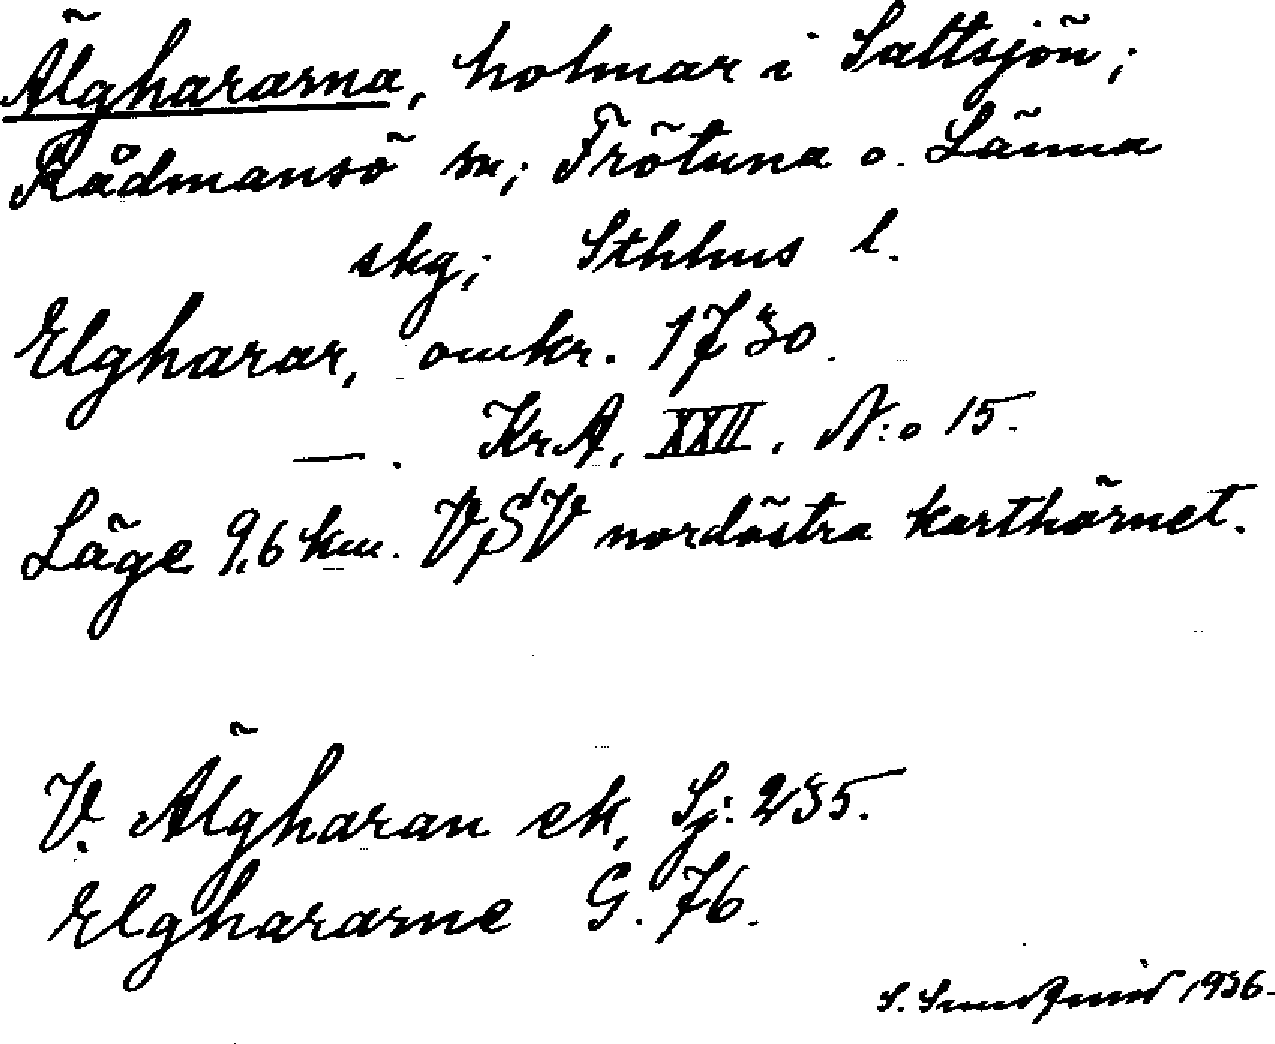 Älghararna, holmar i Saltsjön;
Rådmansö sn; Frötuna o. Länna
skg; Sthlms l.
Elgharar, omkr. 1730.
—. KrA, XXII. N:o 15.
Läge 9,6 km. VSV nordöstra karthörnet.
V. Älgharan ek, Sj: 235.
Elghararne G. 76.
S. 1936.